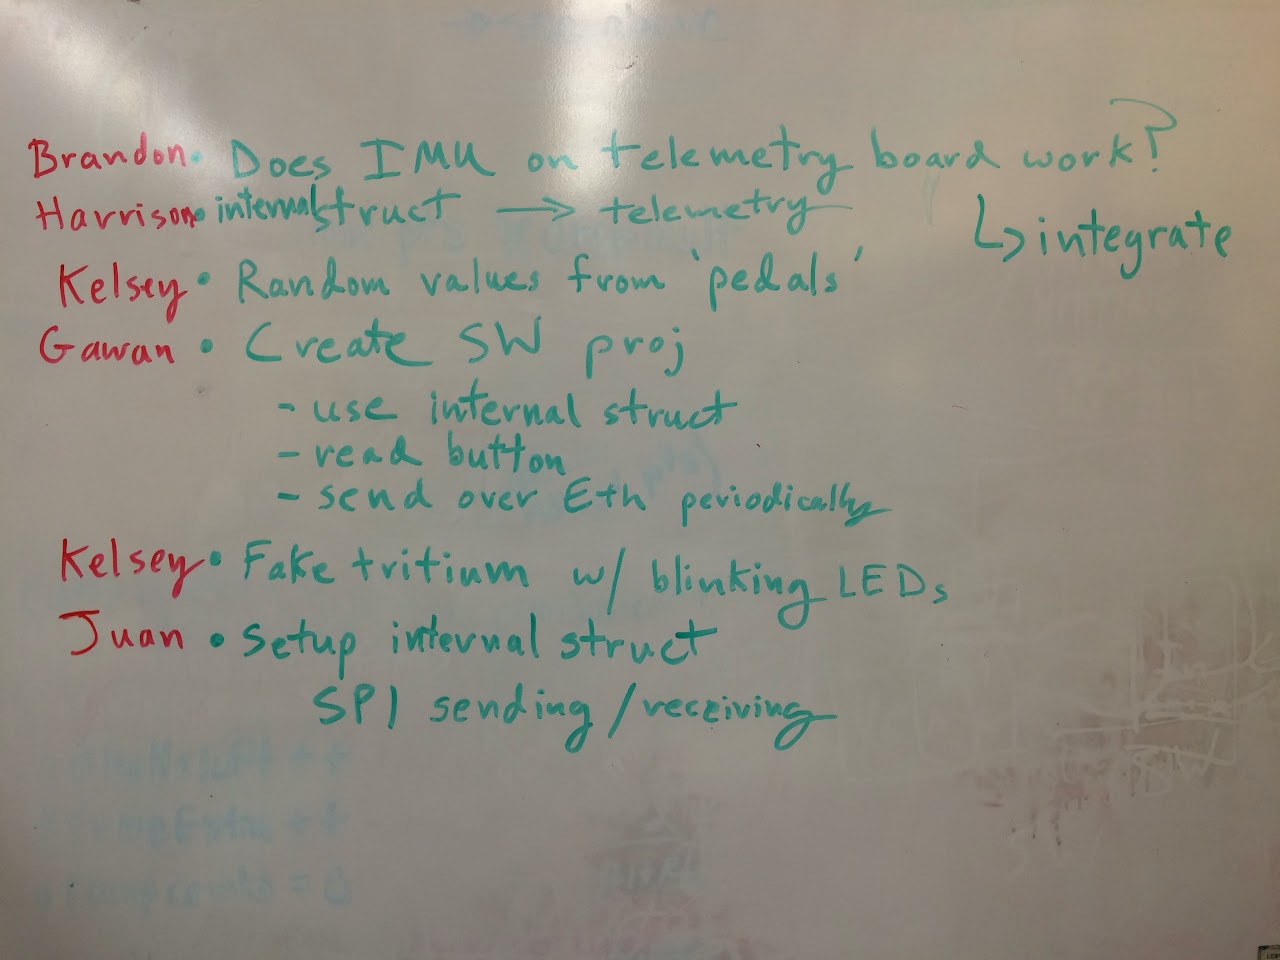 Brandon • Does IMU on telemetry board work?
↳ integrate
Harrison • internal struct → telemetry
Kelsey • Random values from 'pedals'
Gawan • Create SW proj
- use internal struct
- read button
- send over Eth periodically
Kelsey • Fake tritium w/ blinking LEDs
Juan • Setup internal struct
SPI sending/receiving